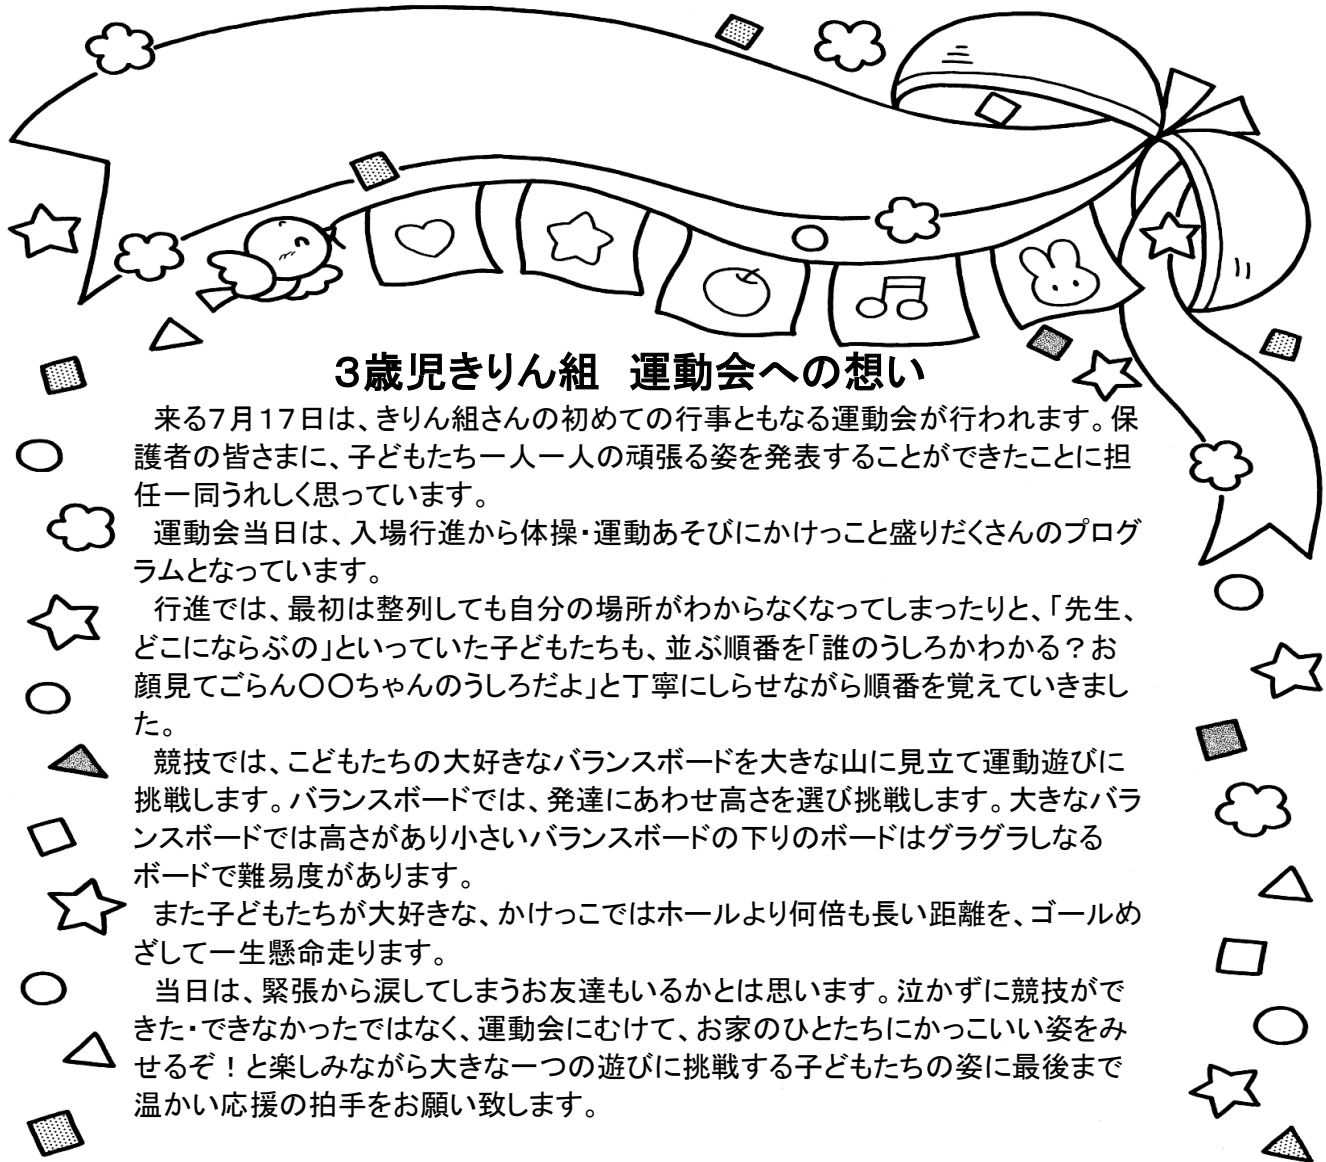 3歳児きりん組　運動会への想い
　来る７月１７日は、きりん組さんの初めての行事ともなる運動会が行われます。保
護者の皆さまに、子どもたち一人一人の頑張る姿を発表することができたことに担
任一同うれしく思っています。
　運動会当日は、入場行進から体操・運動あそびにかけっこと盛りだくさんのプログ
ラムとなっています。
　行進では、最初は整列しても自分の場所がわからなくなってしまったりと、「先生、
どこにならぶの」といっていた子どもたちも、並ぶ順番を「誰のうしろかわかる？お
顔見てごらん〇〇ちゃんのうしろだよ」と丁寧にしらせながら順番を覚えていきまし
た。
　競技では、こどもたちの大好きなバランスボードを大きな山に見立て運動遊びに
挑戦します。バランスボードでは、発達にあわせ高さを選び挑戦します。大きなバラ
ンスボードでは高さがあり小さいバランスボードの下りのボードはグラグラしなる
ボードで難易度があります。
　また子どもたちが大好きな、かけっこではホールより何倍も長い距離を、ゴールめ
ざして一生懸命走ります。
　当日は、緊張から涙してしまうお友達もいるかとは思います。泣かずに競技がで
きた・できなかったではなく、運動会にむけて、お家のひとたちにかっこいい姿をみ
せるぞ！と楽しみながら大きな一つの遊びに挑戦する子どもたちの姿に最後まで
温かい応援の拍手をお願い致します。